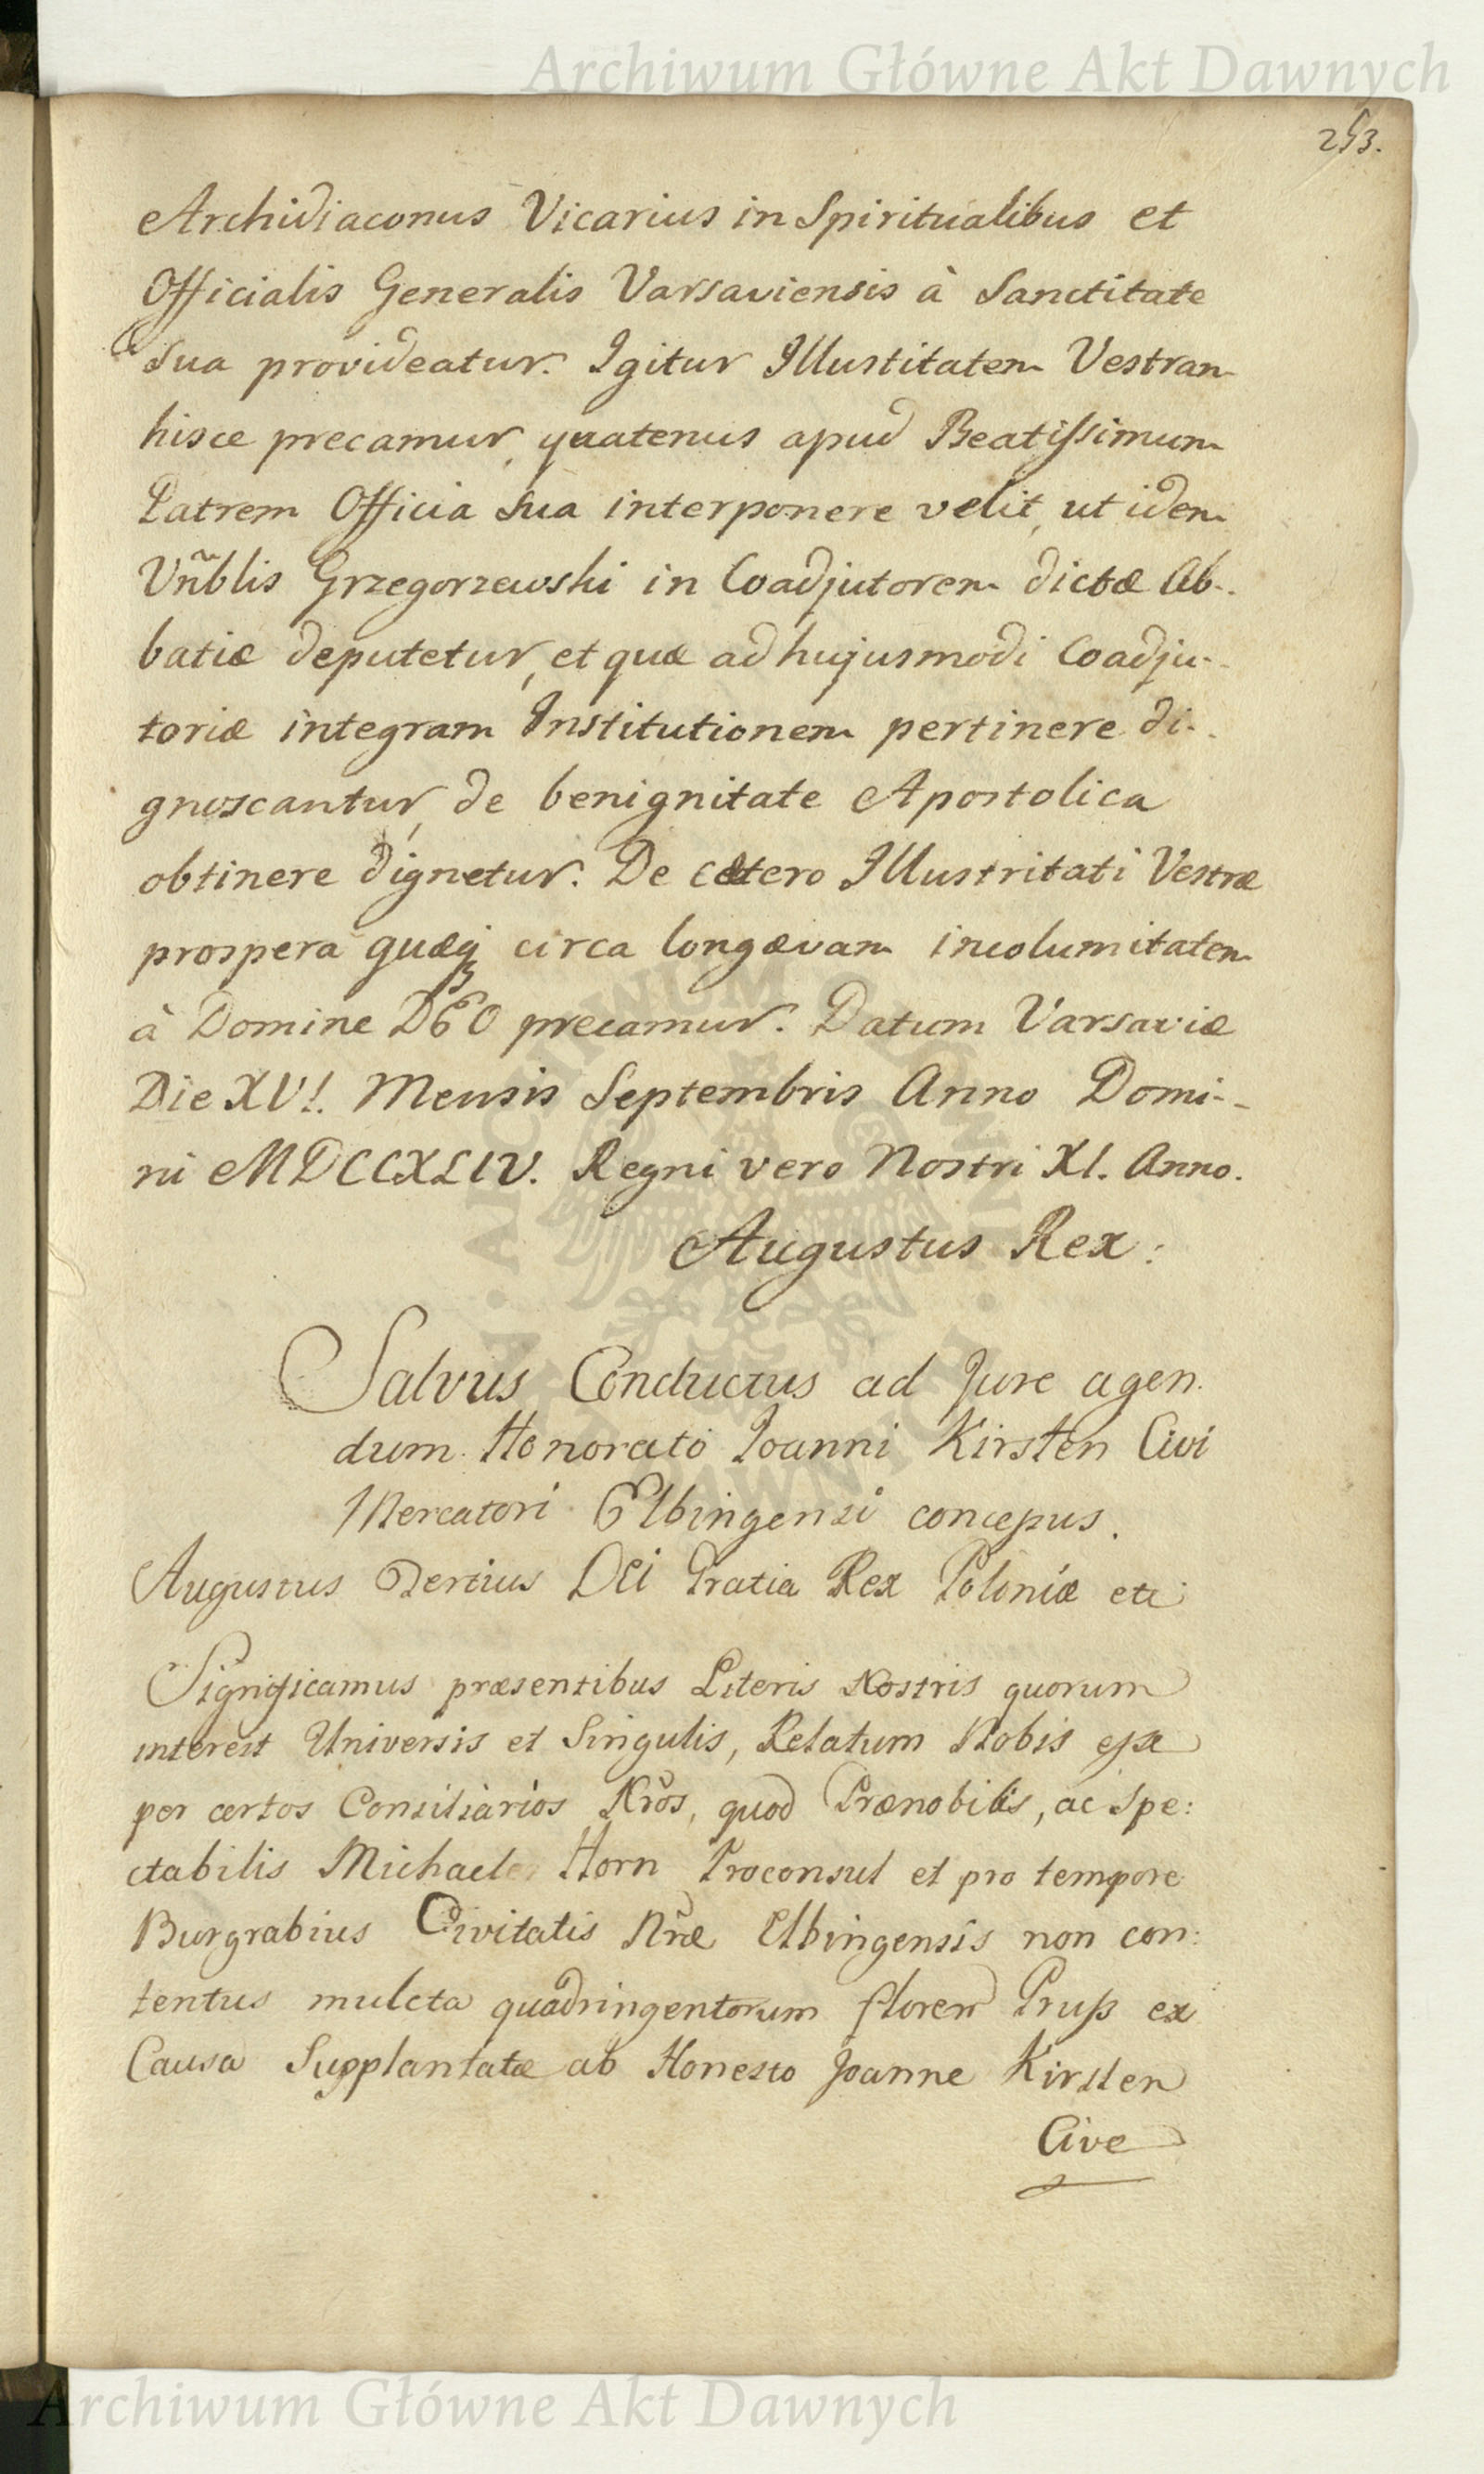 Archiwum Główne Akt Dawnych
253.
Archidiaconus Vicarius in Spiritualibus et
Officialis Generalis Varsaviensis à Sanctitate
Sua provideatur. Igitur Illustitatem Vestram
hisce precamur, quatenus apud Beatissimum
Patrem Officia Sua interponere velit, ut idem
Vñblis Grzegorzewski in Coadjutorem dictæ Ab-
batiæ deputetur, et quæ ad hujusmodi Coadju-
toriæ integram Institutionem pertinere di-
gnoscantur, de benignitate Apostolica
obtinere dignetur. De cætero Illustritati Vestræ
prospera quæq circa longævam incolumitatem
à Domine DEO precamur. Datum Varsaviæ
Die XVI. Mensis Septembris Anno Domi-
ni MDCCXLIV. Regni vero Nostri XI. Anno.
Augustus Rex:
Salvus Conductus ad Jure agen.
dum Honorato Joanni Kirsten Civi
Mercatori Elbingensi concessus.
Augustus Tertius Dei Gratia Rex Poloniæ etc
Significamus præsentibus Literis Nostris quorum
interest Universis et Singulis, Relatum Nobis esse
per certos Consiliarios Nros, quod Prænobilis, ac Spe:
ctabilis Michael Horn Proconsul et pro tempore
Burgrabius Civitatis Nræ Elbingensis non con:
tentus mulcta quadringentorum floren Pruss ex
Causa Supplantatæ ab Honesto Joanne Kirsten
Cive
Archiwum Główne Akt Dawnych